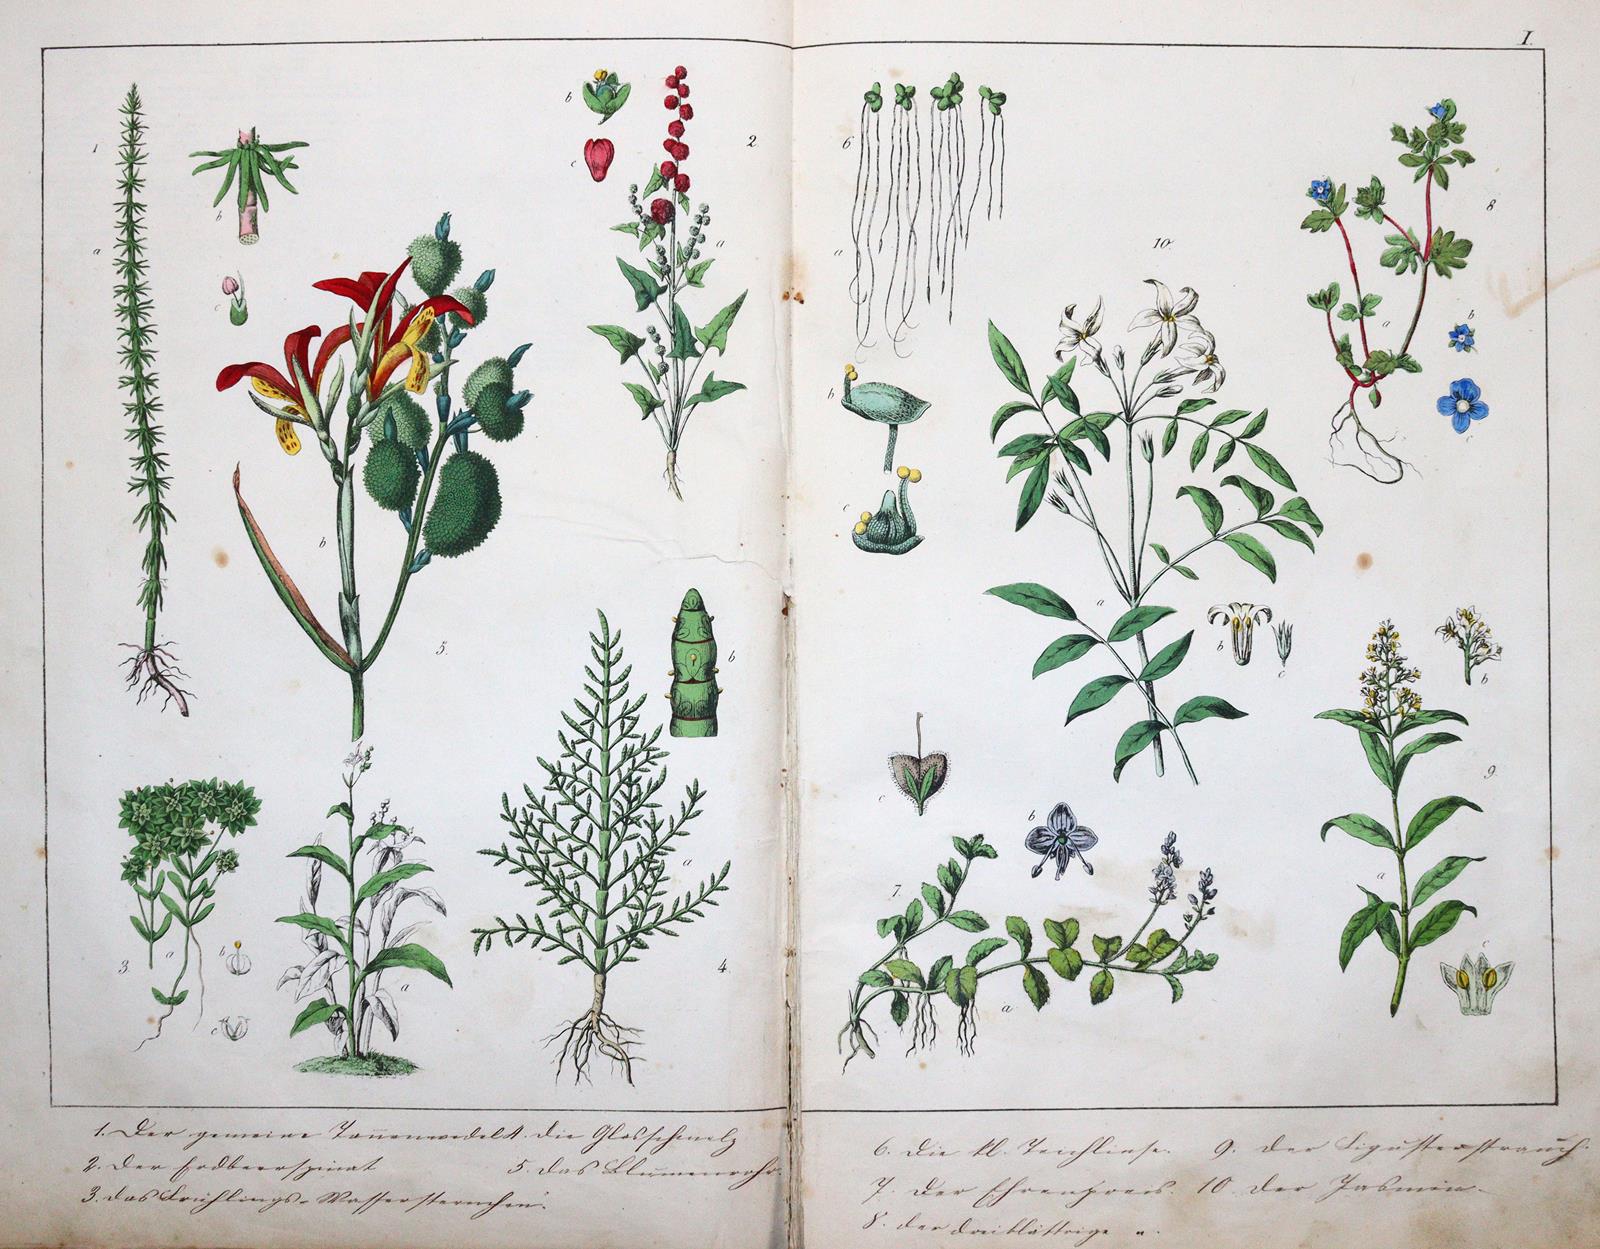 I.
1
a
b
c
2
a
b
c
3.
a
b
c
4.
a
b
5.
a
b
6
a
b
c
7
a
b
c
8
a
b
c
9
a
b
c
10.
a
b
c
1. Der gemeine Tannenwedel 4. die Glasschmelz
2. der Erdbeerspinat 5. das Blumenrohr.
3. das Frühlings-Wassersternchen.
6. die kl. Teichlinse. 9. der Ligusterstrauch.
7. der Ehrenpreis. 10 der Jasmin.
8. der dreiblättrige ".